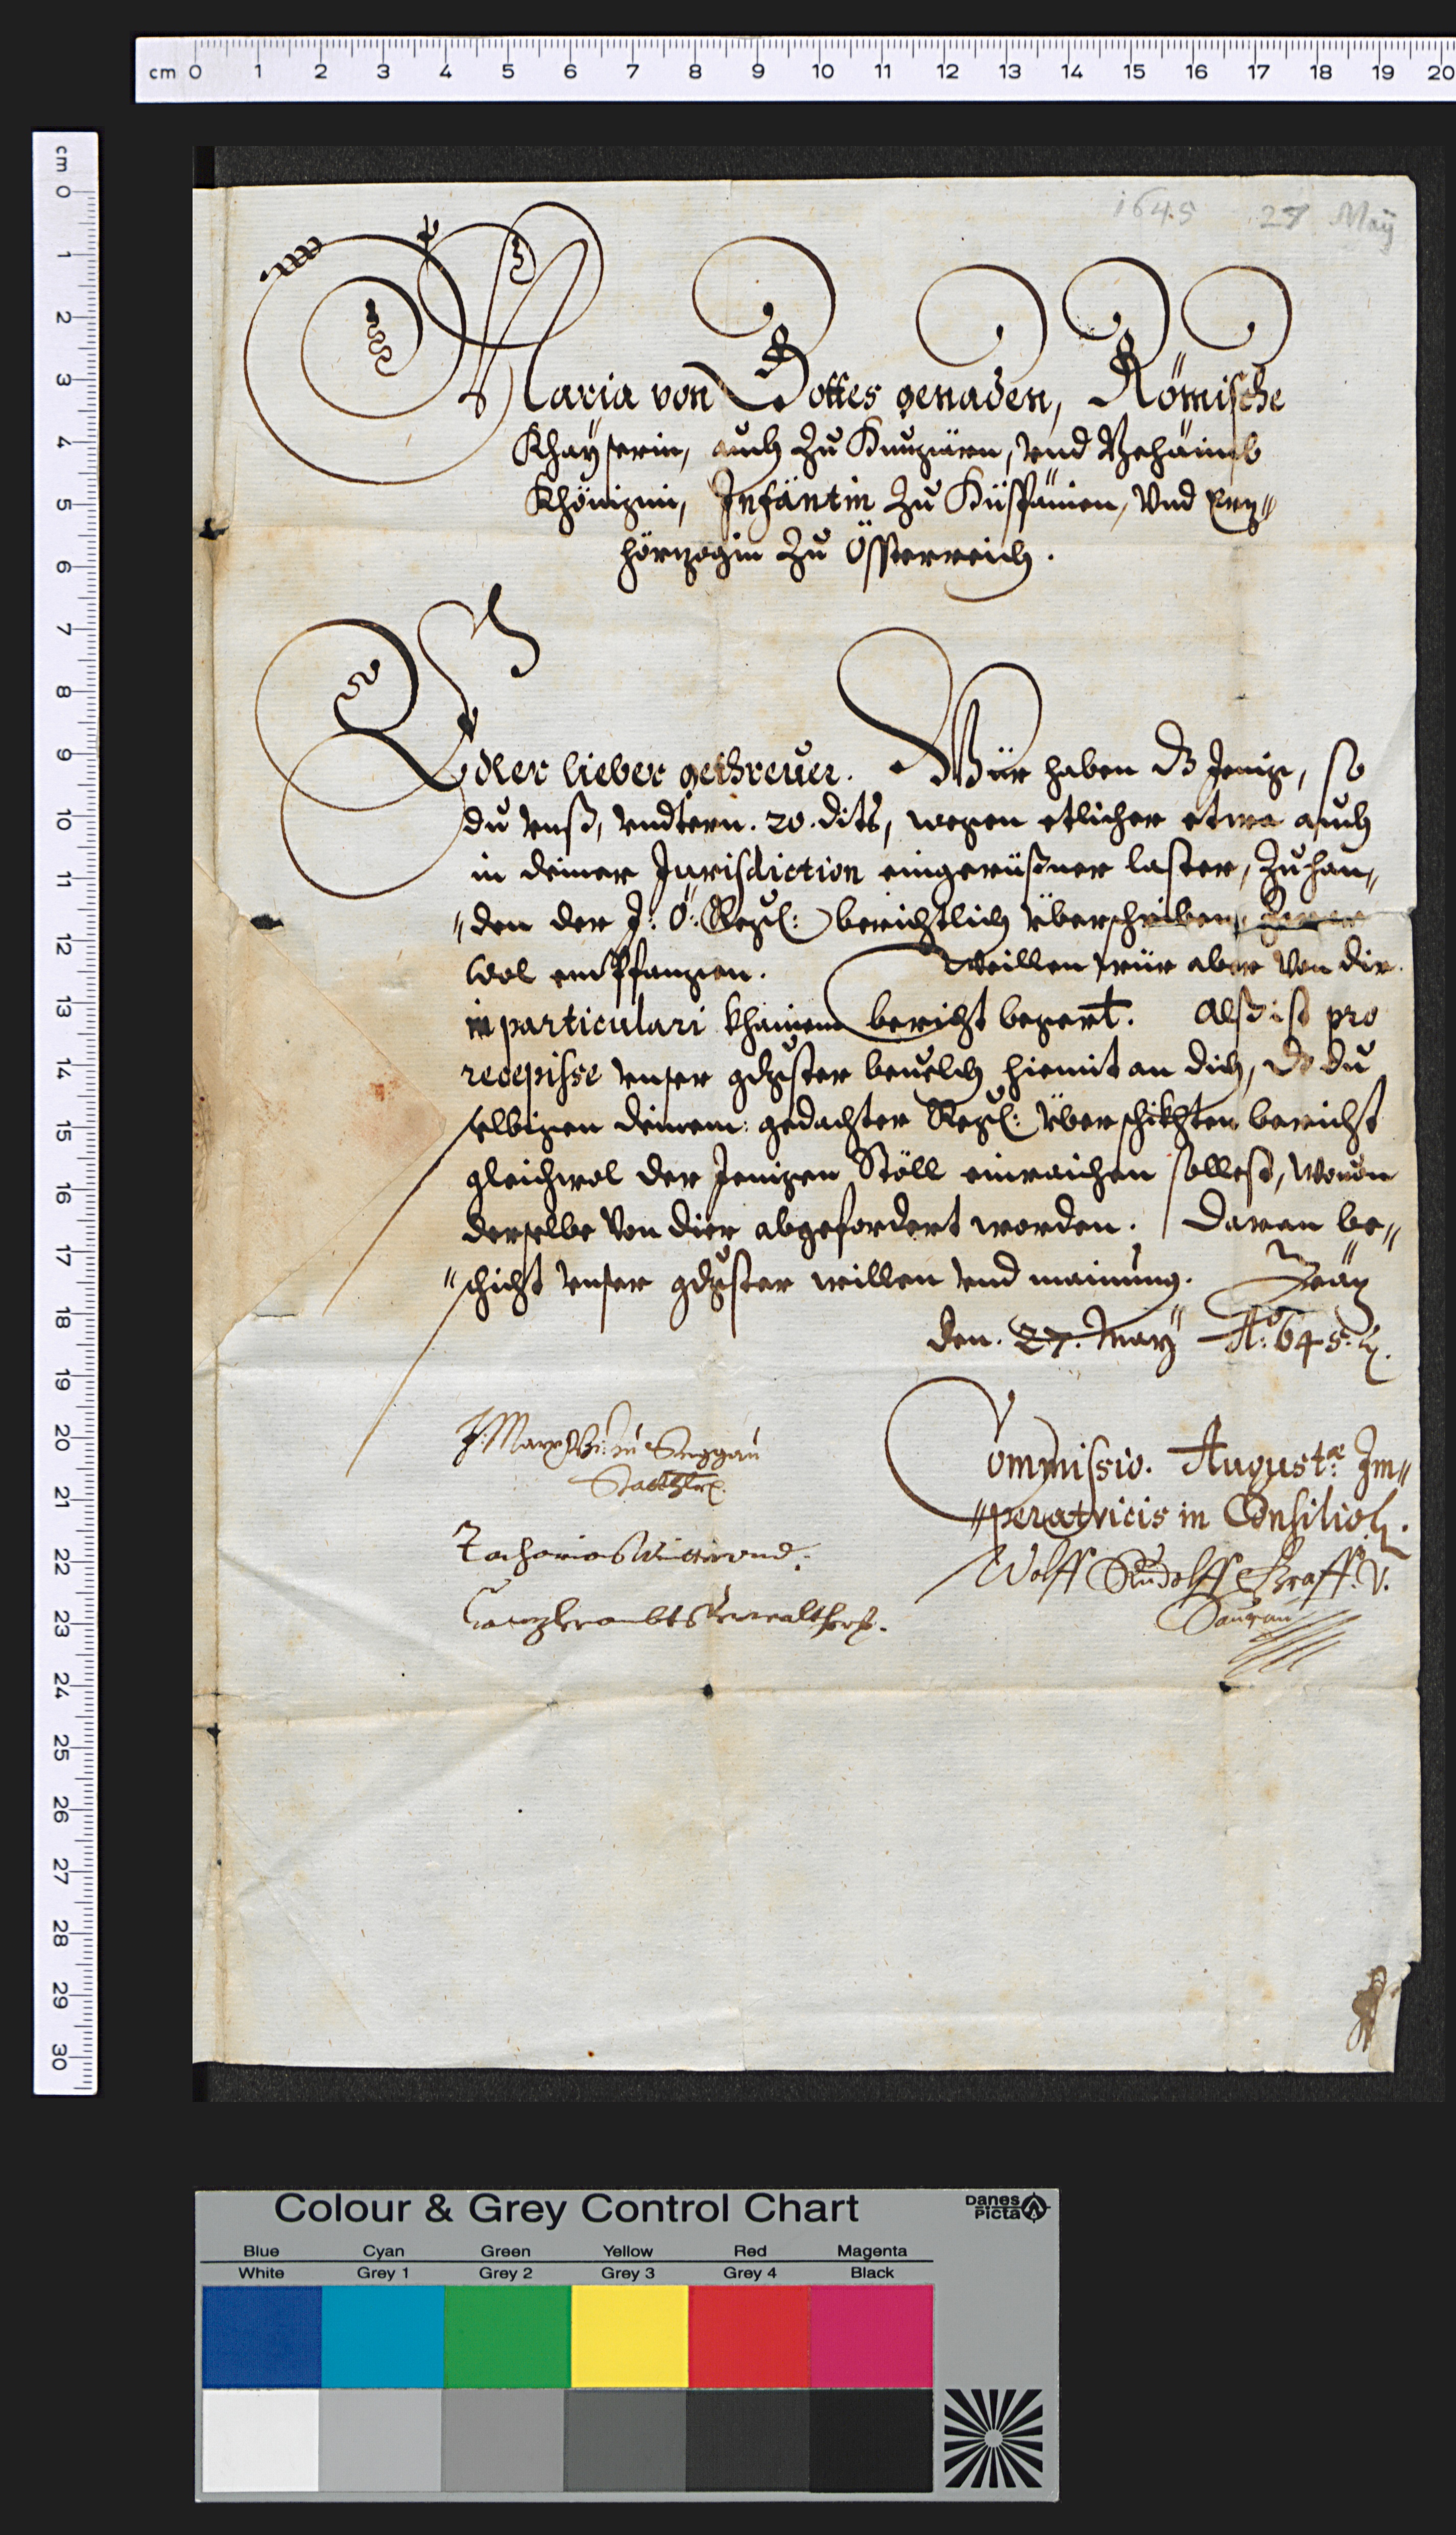 cm 0 1 2 3 4 5 6 7 8 9 10 11 12 13 14 15 16 17 18 19 20
cm 0 1 2 3 4 5 6 7 8 9 10 11 12 13 14 15 16 17 18 19 20 21 22 23 24 25 26 27 28 29 30
1645 27 Maÿ
Maria von Gottes genaden, Römische
Khaÿserin, auch zu Hungärn, vnd Behäimb
Khönigin, Infäntin zu Hüspänien, Vnd Ertz„
hörtzogin zu Össterreich.
Edler lieber gethreuer. Wür haben dz Jenige, so
du vnß, vndtern. 20. dits, wegen etlicher etwa auch
in deiner Jurisdiction eingerüßner laster, zuhan„
„den der J: Ö: Regl: berichtlich überschriben,
wol empfangen. Weillen wür aber von dir
in particulari khainen bericht begert. Alß ist pro
recepisse vnser gdigster beuelch hiemit an dich, dz du
selbigen deinem: gedachter Regl: überschikhten bericht
gleichwol der Jenigen Stöll einraichen sollest, wouon
derselbe von dier abgefordert worden. Daran be„
„schicht vnser gdigster willen vnd mainung. Gräz
den. 27. Maÿ Ao: 645.
J: Marx Bi: zu Seggau
Statthlr.
Commissio. Augustæ Im„
„peratricis in Consilio.
Zacharias
Canzlerambts verwalther
Wolff Rudolff Graff. v.
Saurau
Colour & Grey Control Chart
Danes Picta
Blue Cyan Green Yellow Red Magenta
White Grey 1 Grey 2 Grey 3 Grey 4 Black